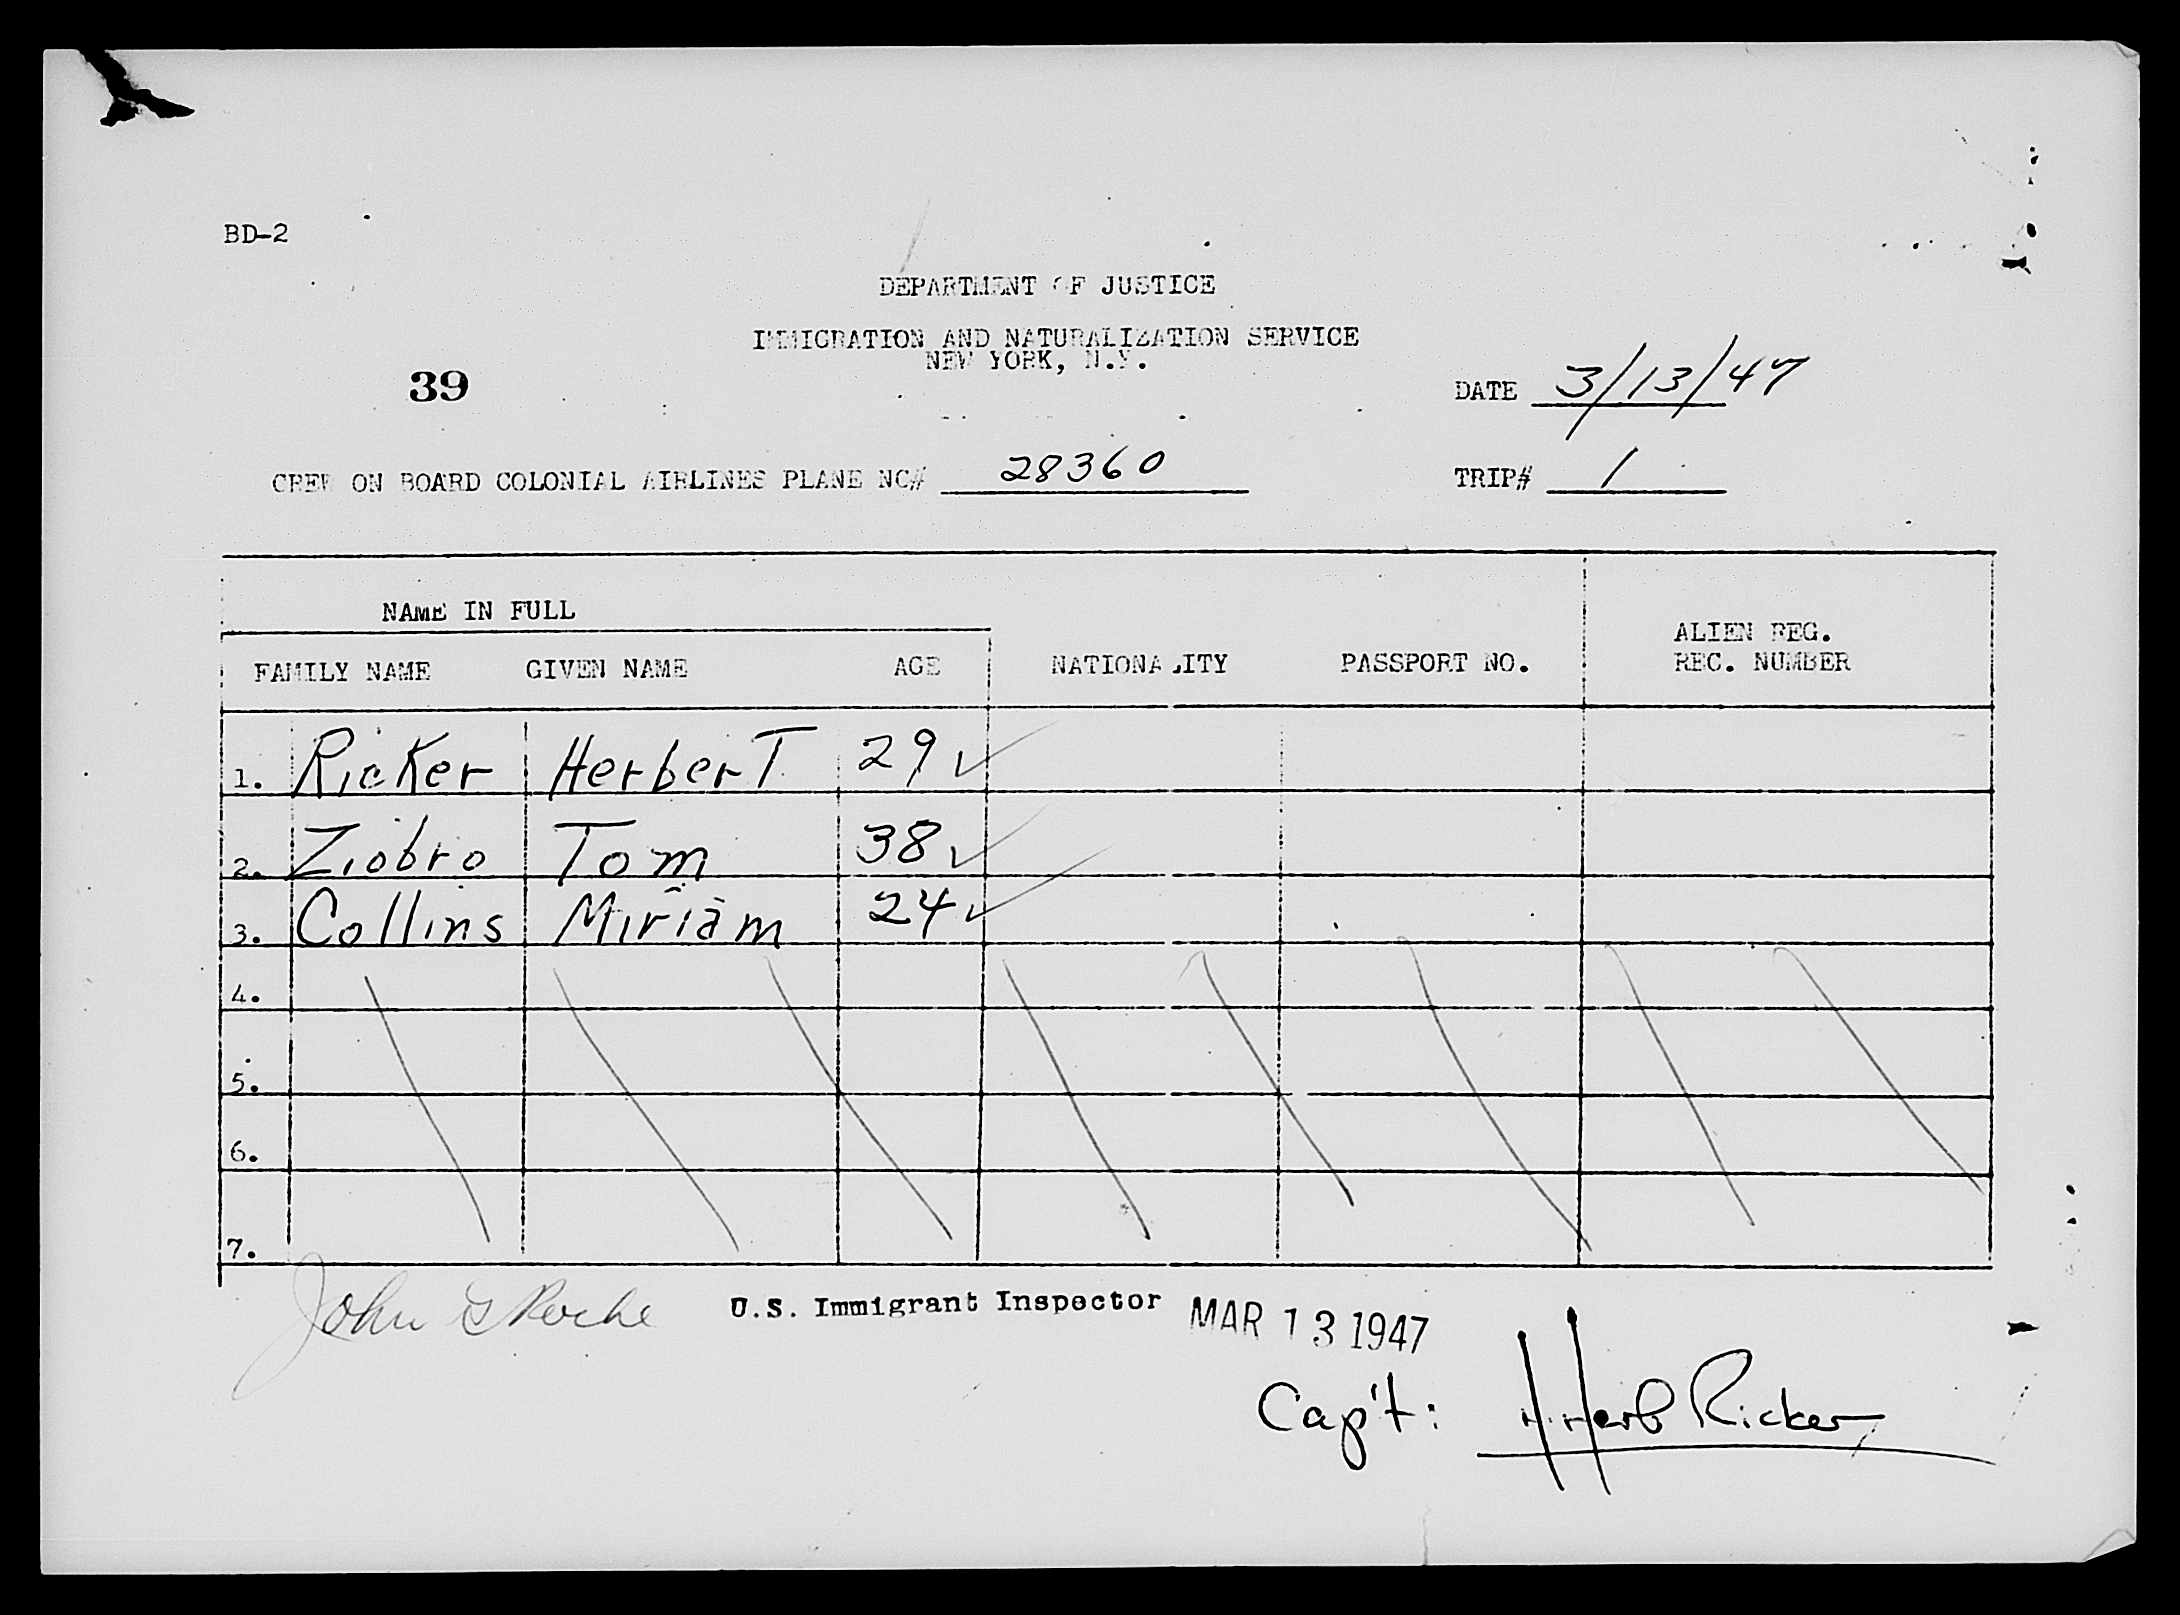 BD-2
DEPARTMENT OF JUSTICE
IMMIGRATION AND NATURALIZATION SERVICE
NEW YORK, N.Y.
39
DATE 3/13/47
CREW ON BOARD COLONIAL AIRLINES PLANE NC# 28360 TRIP# 1
NAME IN FULL
FAMILY NAME GIVEN NAME AGE NATIONALITY PASSPORT NO. ALIEN REG. REC. NUMBER
1. Ricker Herbert 29 ✓
2. Ziobro Tom 38 ✓
3. Collins Miriam 24 ✓
4.
5.
6.
7.
John G Roche U.S. Immigrant Inspector MAR 13 1947
Cap't: Herb Ricker